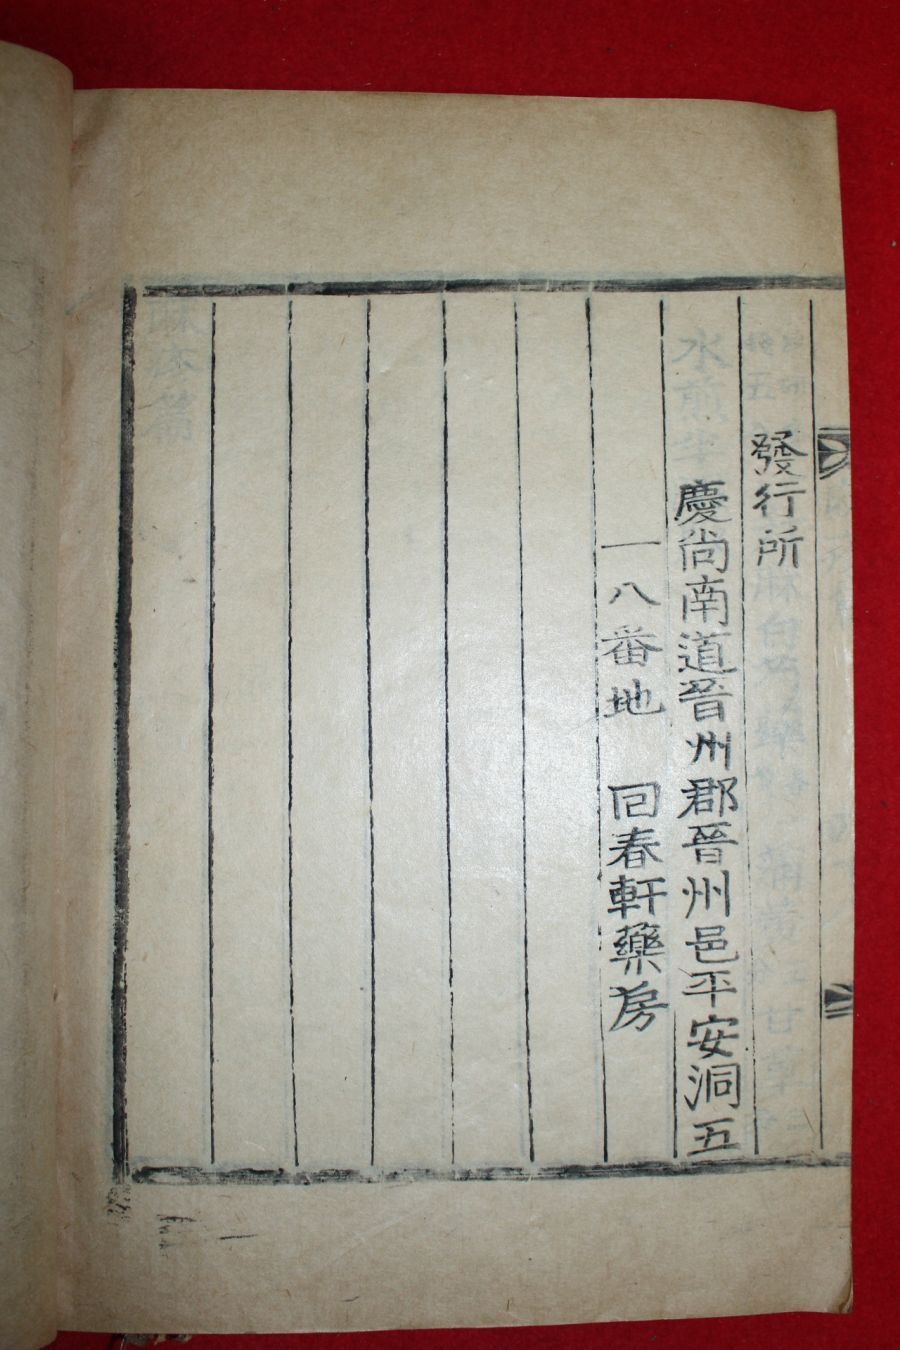 發行所
慶尚南道晉州郡晉州邑平安洞五
一八番地 回春軒藥房